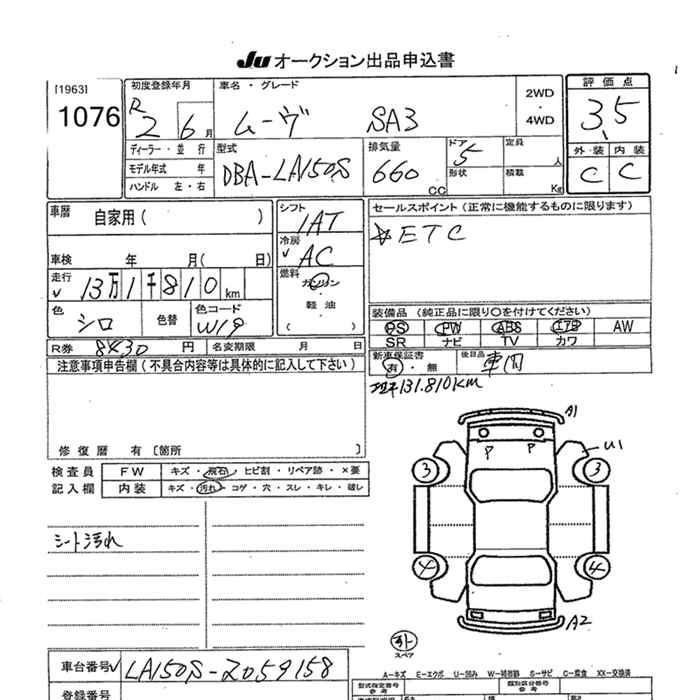 Ju オークション出品申込書
[1963] 初度登録年月 車名・グレード 2WD・4WD 評価点
1076 R2 6月 ムーヴ SA3 3.5
ディーラー・並行 型式 排気量 ドア 定員 外装 内装
モデル年式 年 DBA-LA150S 660 CC 5 人 C C
ハンドル 左・右 形状 積載 Kg
車歴 自家用( ) シフト IAT セールスポイント(正常に機能するものに限ります)
車検 年 月( 日) 冷房 AC ☆ETC
走行 13万1千810km 燃料 ガソリン
色 シロ 色替 色コード W19 軽油 装備品(純正品に限り○を付けてください)
( ) PS PW ABS エアB AW
R券 8430円 名変期限 月 日 SR ナビ TV カワ
注意事項申告欄(不具合内容等は具体的に記入して下さい) 新車保証書 有・無 後日品
131.810KM
修復歴 有[箇所 ]
検査員 FW キズ・飛石・ヒビ割・リペア跡・×要
記入欄 内装 キズ・汚れ・コゲ・穴・スレ・キレ・破レ
A1
P P U1
3 3
シート汚れ
4 4
A2
スペア
車台番号 LA150S-2059158
A…キズ E…エクボ U…凹み W…補修跡 S…サビ C…腐食 XX…交換済
登録番号 型式指定番号 参考 類別区分番号 参考